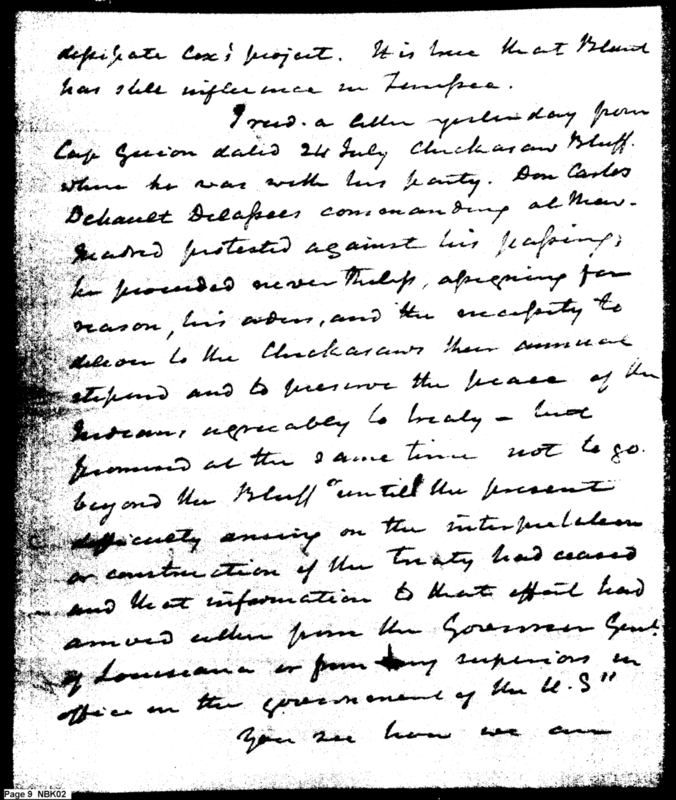 dissipate Cox's project. It is true that Blount
has still influence in Tennessee.
I recd. a letter yesterday from
Cap Guion dated 24 July Chickasaw Bluff.
where he was with his party. Don Carlos
Dehault Delassees commanding at New-
Madrid protested against his passing;
he proceeded never theless, assigning for
reason, his orders, and the necessity to
deliver to the Chickasaws their annual
stipend and to preserve the peace of the
Indians, agreeably to treaty - but
promised at the same time not to go
beyond the Bluff "until the present
difficulty arising on the interpretation
or construction of the treaty had ceased
and that information to that effect had
arrived either from the Governor Genl.
of Louisiana or from my superiors in
office in the government of the U.S"
You see how we are
Page 9 NBK02